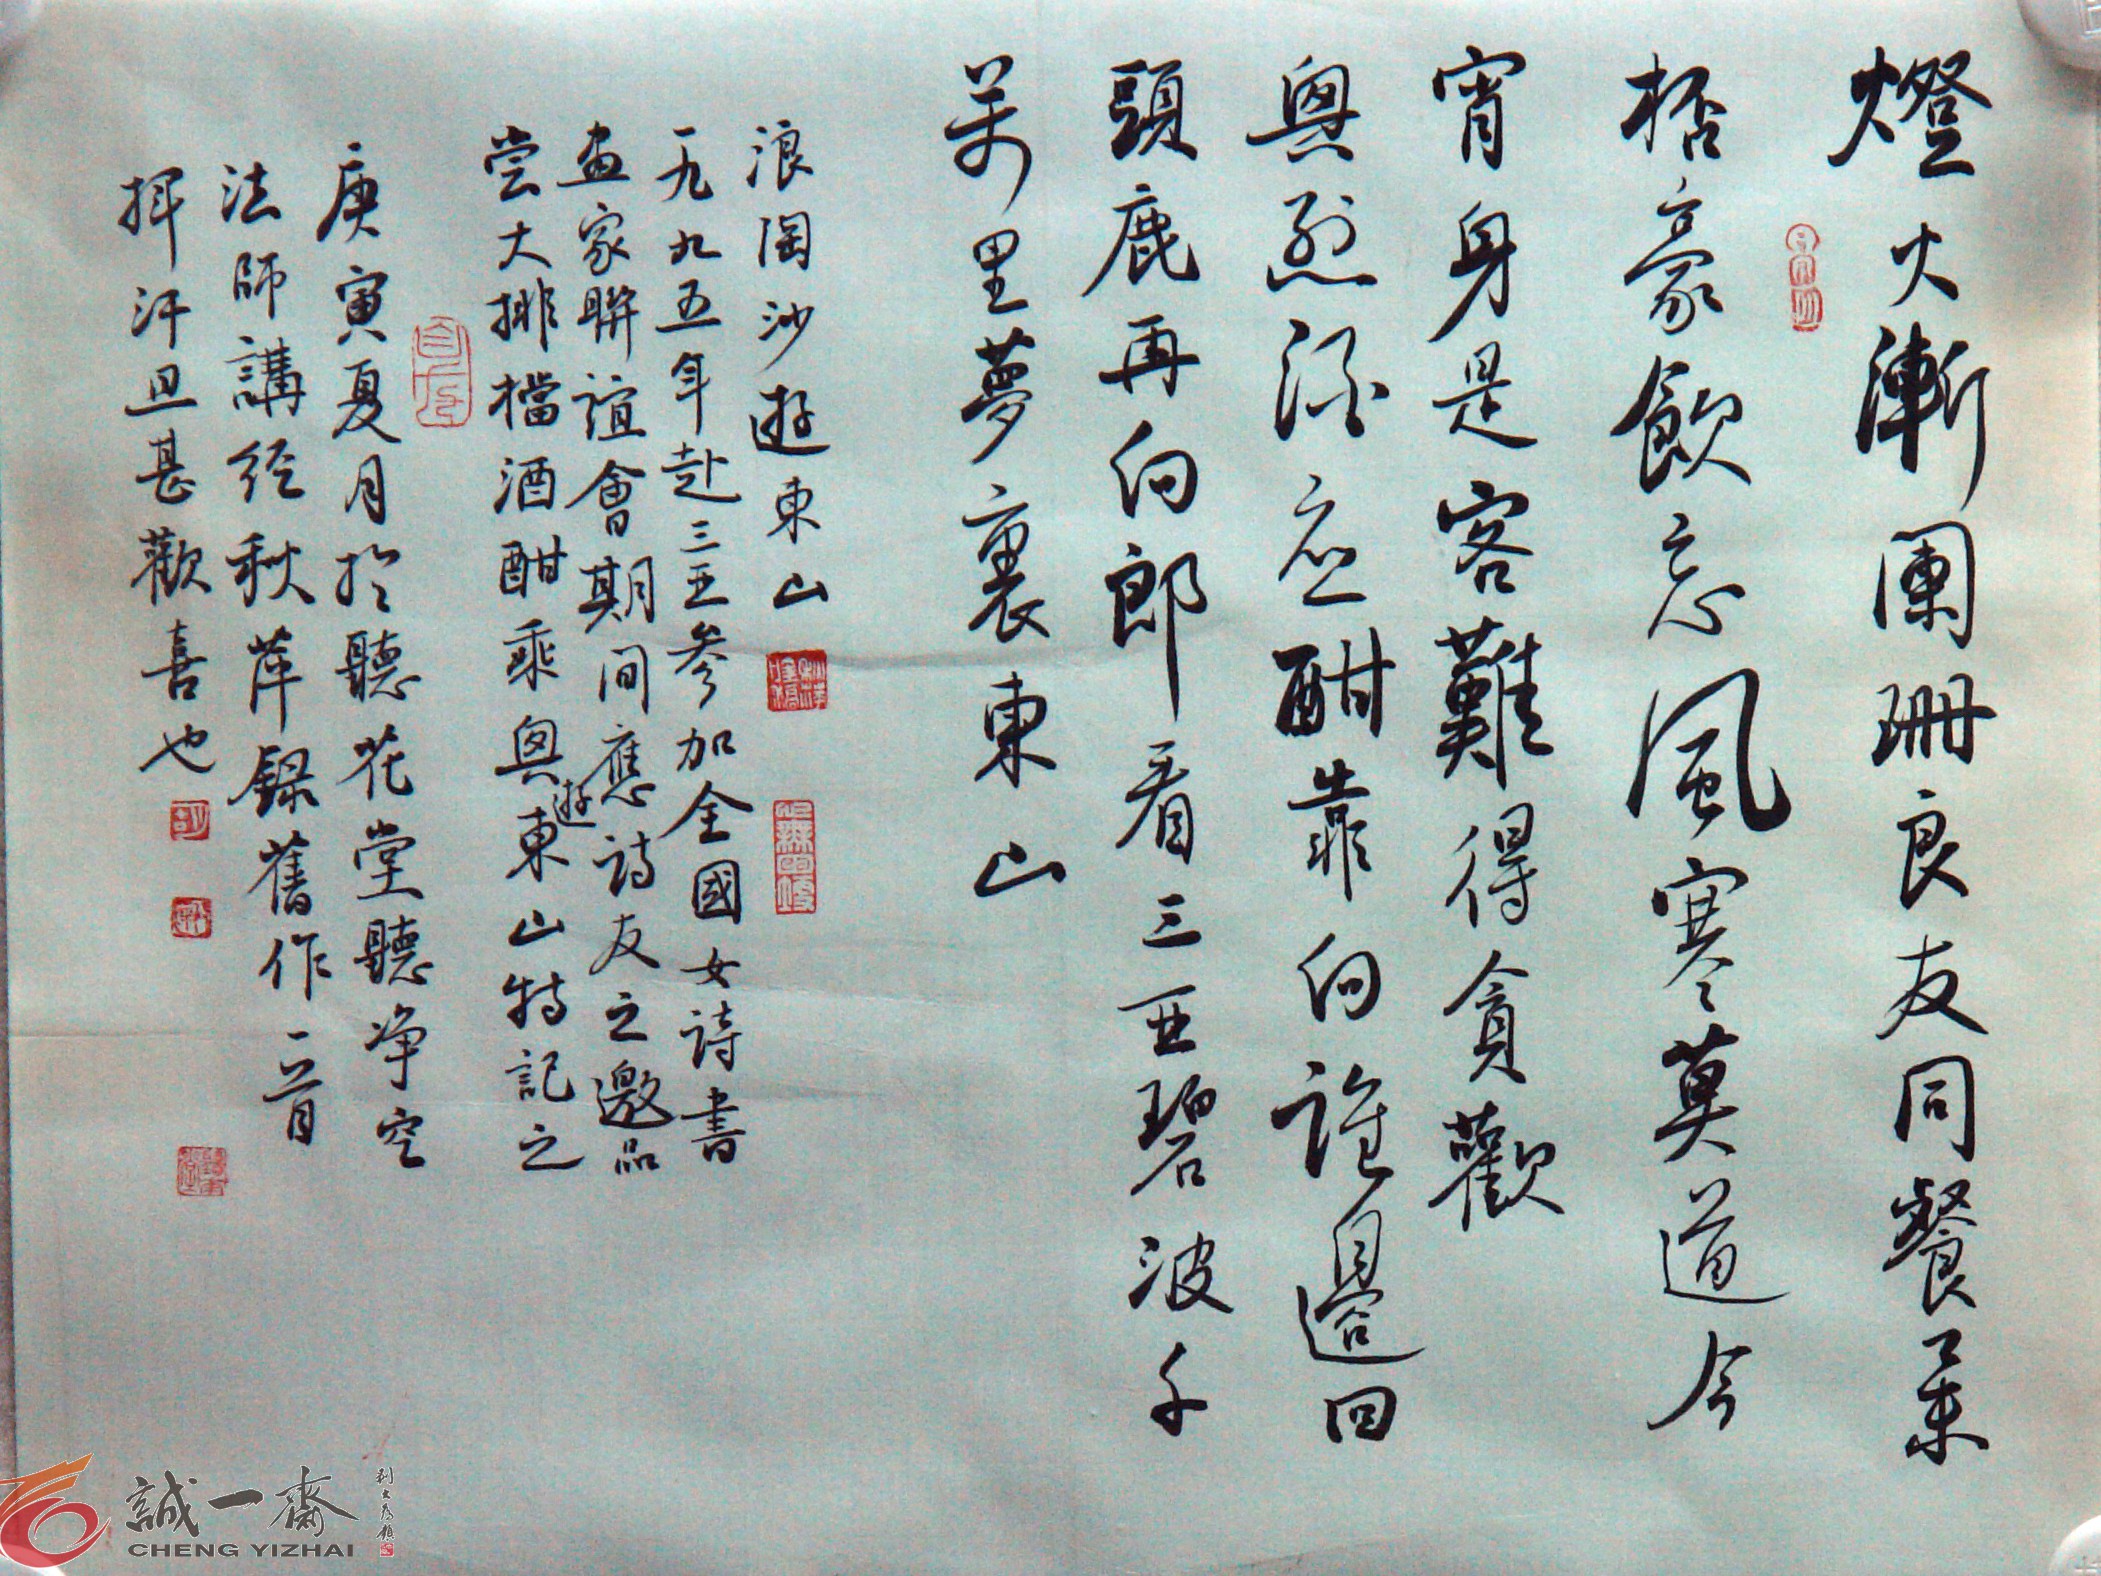 燈火漸闌珊良友同餐杯
杯豪飲忘風寒莫道今
宵身是客難得貪歡
興烈酒應酣靠向誰邊回
頭鹿再向郎看三亞碧波千
萬里夢裏東山
浪淘沙遊東山
一九九五年赴三亞參加全國女詩書
畫家聯誼會期間應詩友之邀品
尝大排檔酒酣乘興遊東山特記之
庚寅夏月於聽花堂聽净空
法師講经秋萍録舊作一首
揮汗且甚歡喜也
誠一齋
CHENG YIZHAI